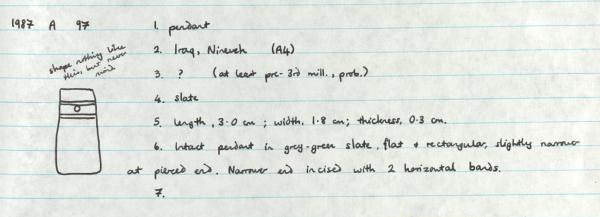 1987 A 97
1. pendant
2. Iraq, Nineveh (A4)
shape nothing like
this, but never
mind
3. ? (at least pre-3rd mill., prob.)
4. slate
5. length, 3.0 cm; width, 1.8 cm; thickness, 0.3 cm.
6. Intact pendant in grey-green slate, flat & rectangular, slightly narrower
at pierced end. Narrower end incised with 2 horizontal bands.
7.